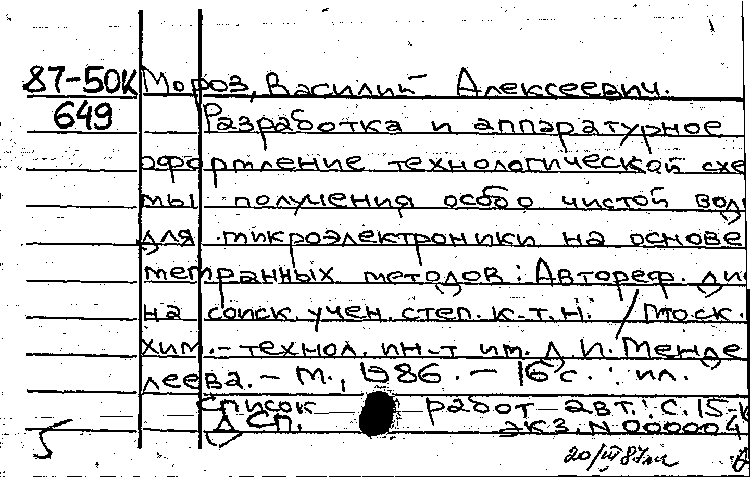 87-50К Мороз, Василий Алексеевич.
649 Разработка и аппаратурное
оформление технологической схе
мы получения особо чистой вод
для микроэлектроники на основе
мембранных методов: Автореф. ди
на соиск. учен. степ. к.т.н. / Моск.
хим.-технол. ин-т им. Д.И. Менде
леева. - М., 1986. - 16 с. : ил.
Список работ авт.: с. 15-
ДСП. экз. N 000004
5 20/III 87